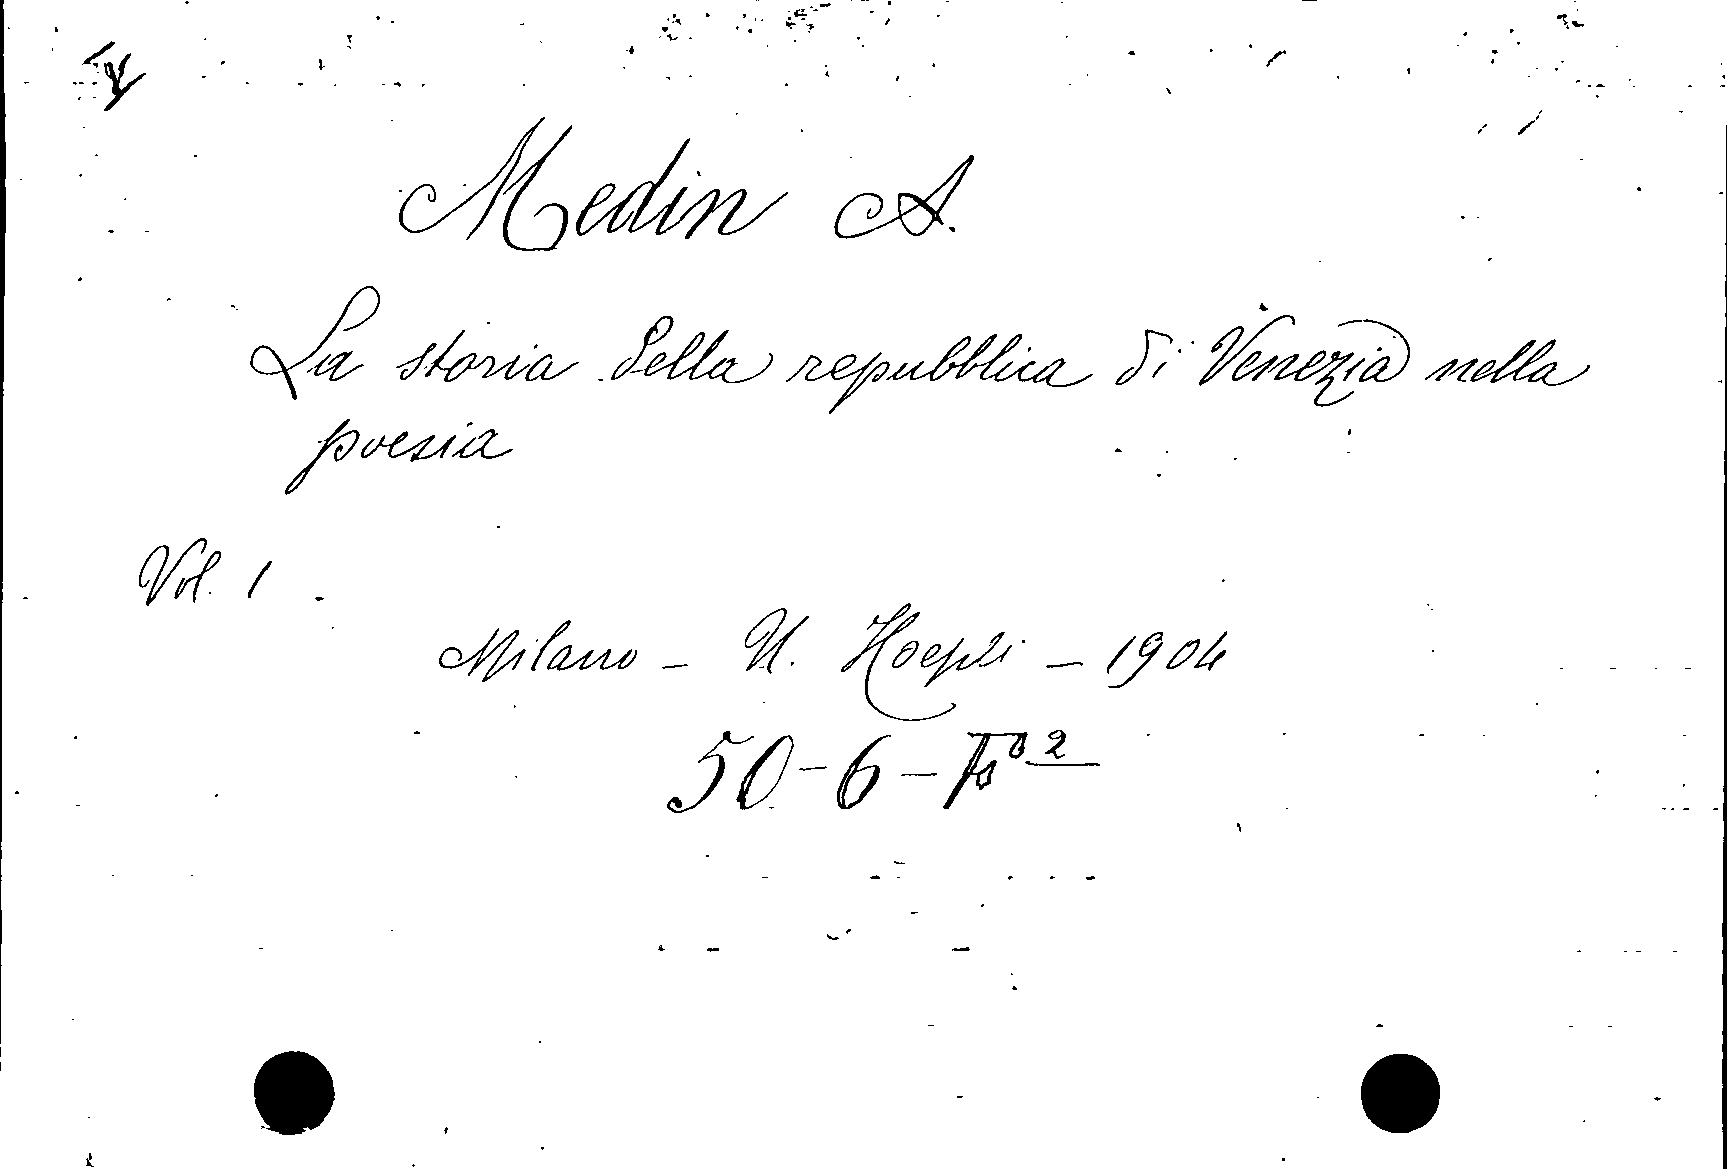 Medin A.
La storia della repubblica di Venezia nella
poesia
Vol. 1
Milano - U. Hoepli - 1904
50-6-